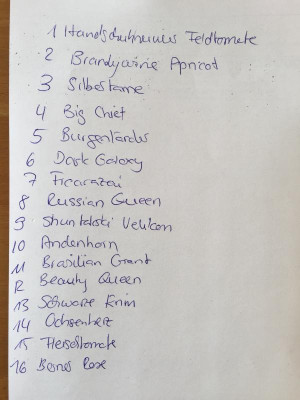 1 Handschuhsheims Feldtomate
2 Brandywine Apricot
3 Silbertanne
4 Big Chief
5 Burgenländer
6 Dark Galaxy
7 Ficarazzi
8 Russian Queen
9 Shuntukski Velikan
10 Andenhorn
11 Brasilian Giant
12 Beauty Queen
13 Schwarze Krim
14 Ochsenherz
15 Fleischtomate
16 Berner Rose